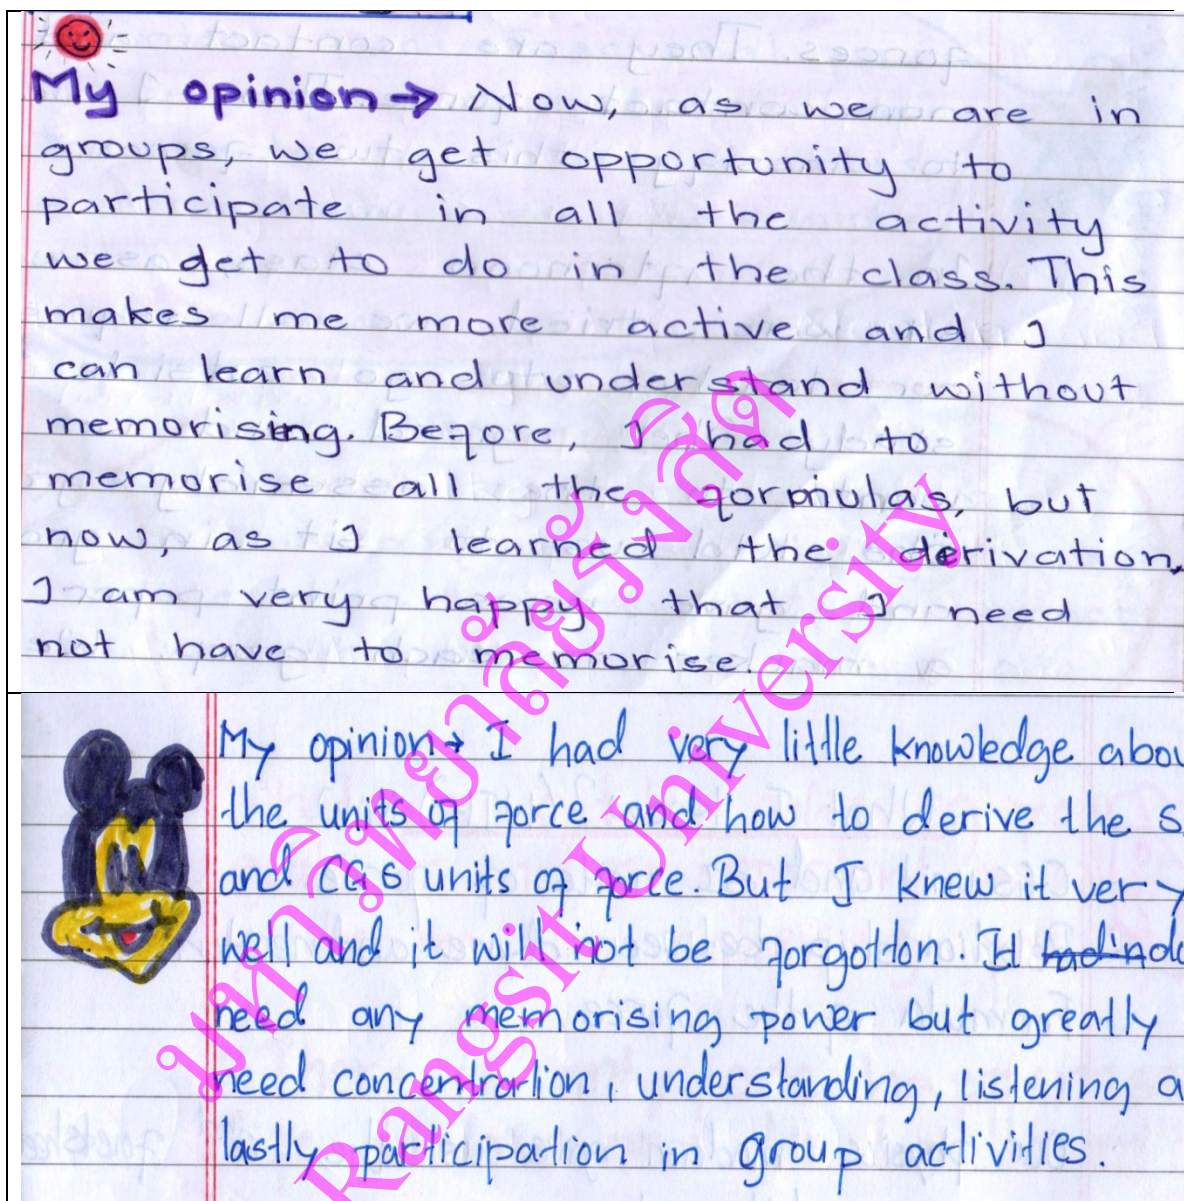 My opinion → Now, as we are in
groups, we get opportunity to
participate in all the activity
we get to do in the class. This
makes me more active and I
can learn and understand without
memorising. Before, I had to
memorise all the formulas, but
now, as I learned the derivation,
I am very happy that I need
not have to memorise.
My opinion → I had very little knowledge abou
the units of force and how to derive the S
and CGS units of force. But I knew it very
well and it will not be forgotton. It do
need any memorising power but greatly
need concentration, understanding, listening a
lastly participation in group activities.
มหาวิทยาลัยรังสิต
Rangsit University